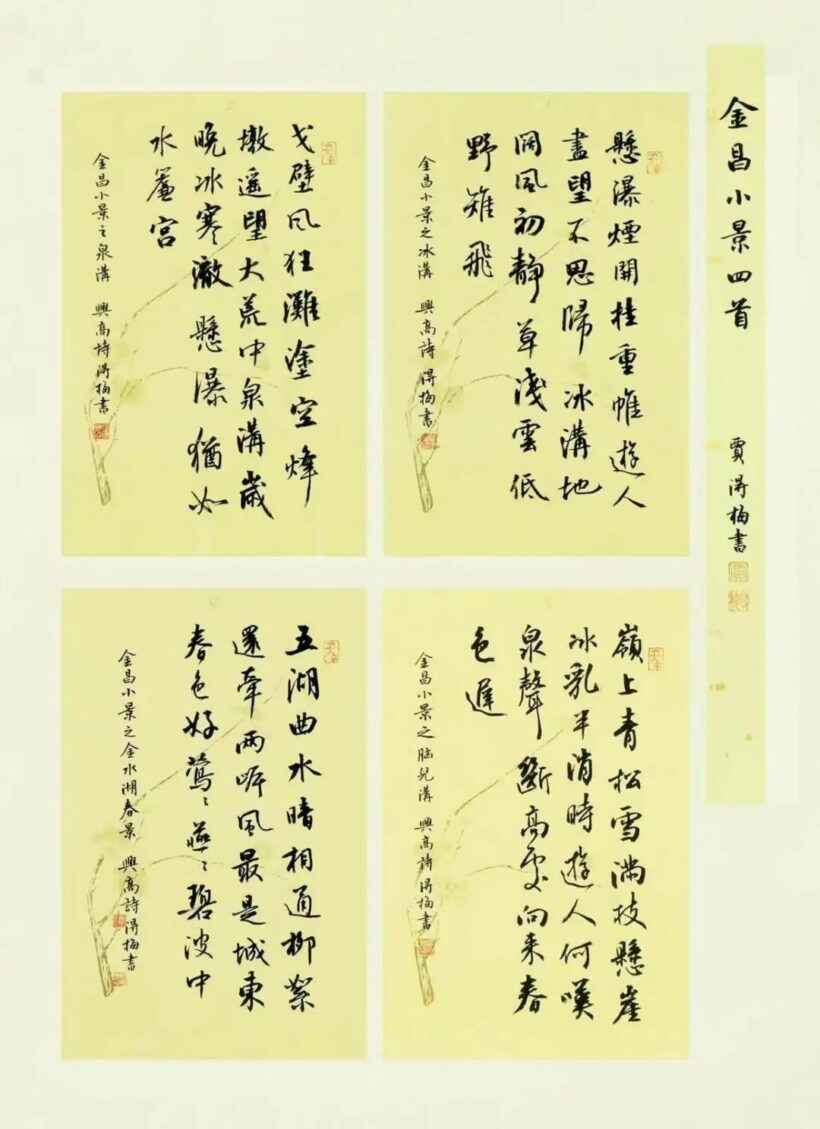 金昌小景四首
賈淂梅書
懸瀑煙開挂重帷遊人
盡望不思歸冰溝地
闊風初靜草淺雲低
野雉飛
金昌小景之冰溝 興高詩 淂梅書
戈壁風狂灘塗空烽
墩遥望大荒中泉溝歲
晚冰寒澈懸瀑猶如
水簾宮
金昌小景之泉溝 興高詩 淂梅書
嶺上青松雪滿枝懸崖
冰乳半消時遊人何嘆
泉聲斷高處向来春
色遲
金昌小景之脑兒溝 興高詩 淂梅書
五湖曲水暗相通柳絮
還牽兩岸風最是城東
春色好鶯〻燕〻碧波中
金昌小景之金水湖春景 興高詩 淂梅書